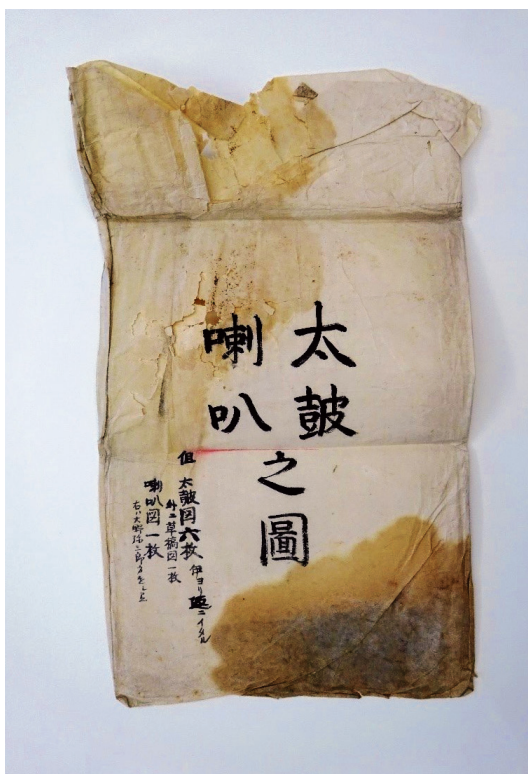 太皷
喇叭
之圖
但 太皷図六枚 伊ヨリ ニイタル
外ニ草稿図一枚
喇叭図一枚
右ハ大野弥三郎